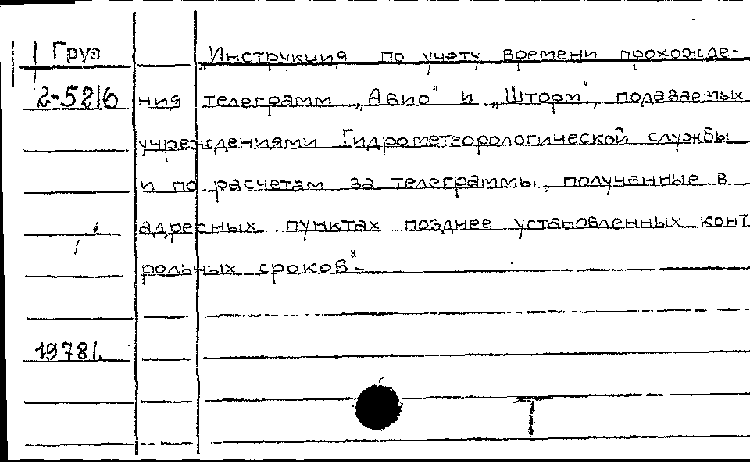 Груз „Инструкция по учету времени прохожде-
2-5216 ния телеграмм „Авио" и „Шторм", подаваемых
учреждениями Гидрометеорологической службы
и по расчетам за телеграммы, полученные в
адресных пунктах позднее установленных конт
рольных сроков".
1978г.